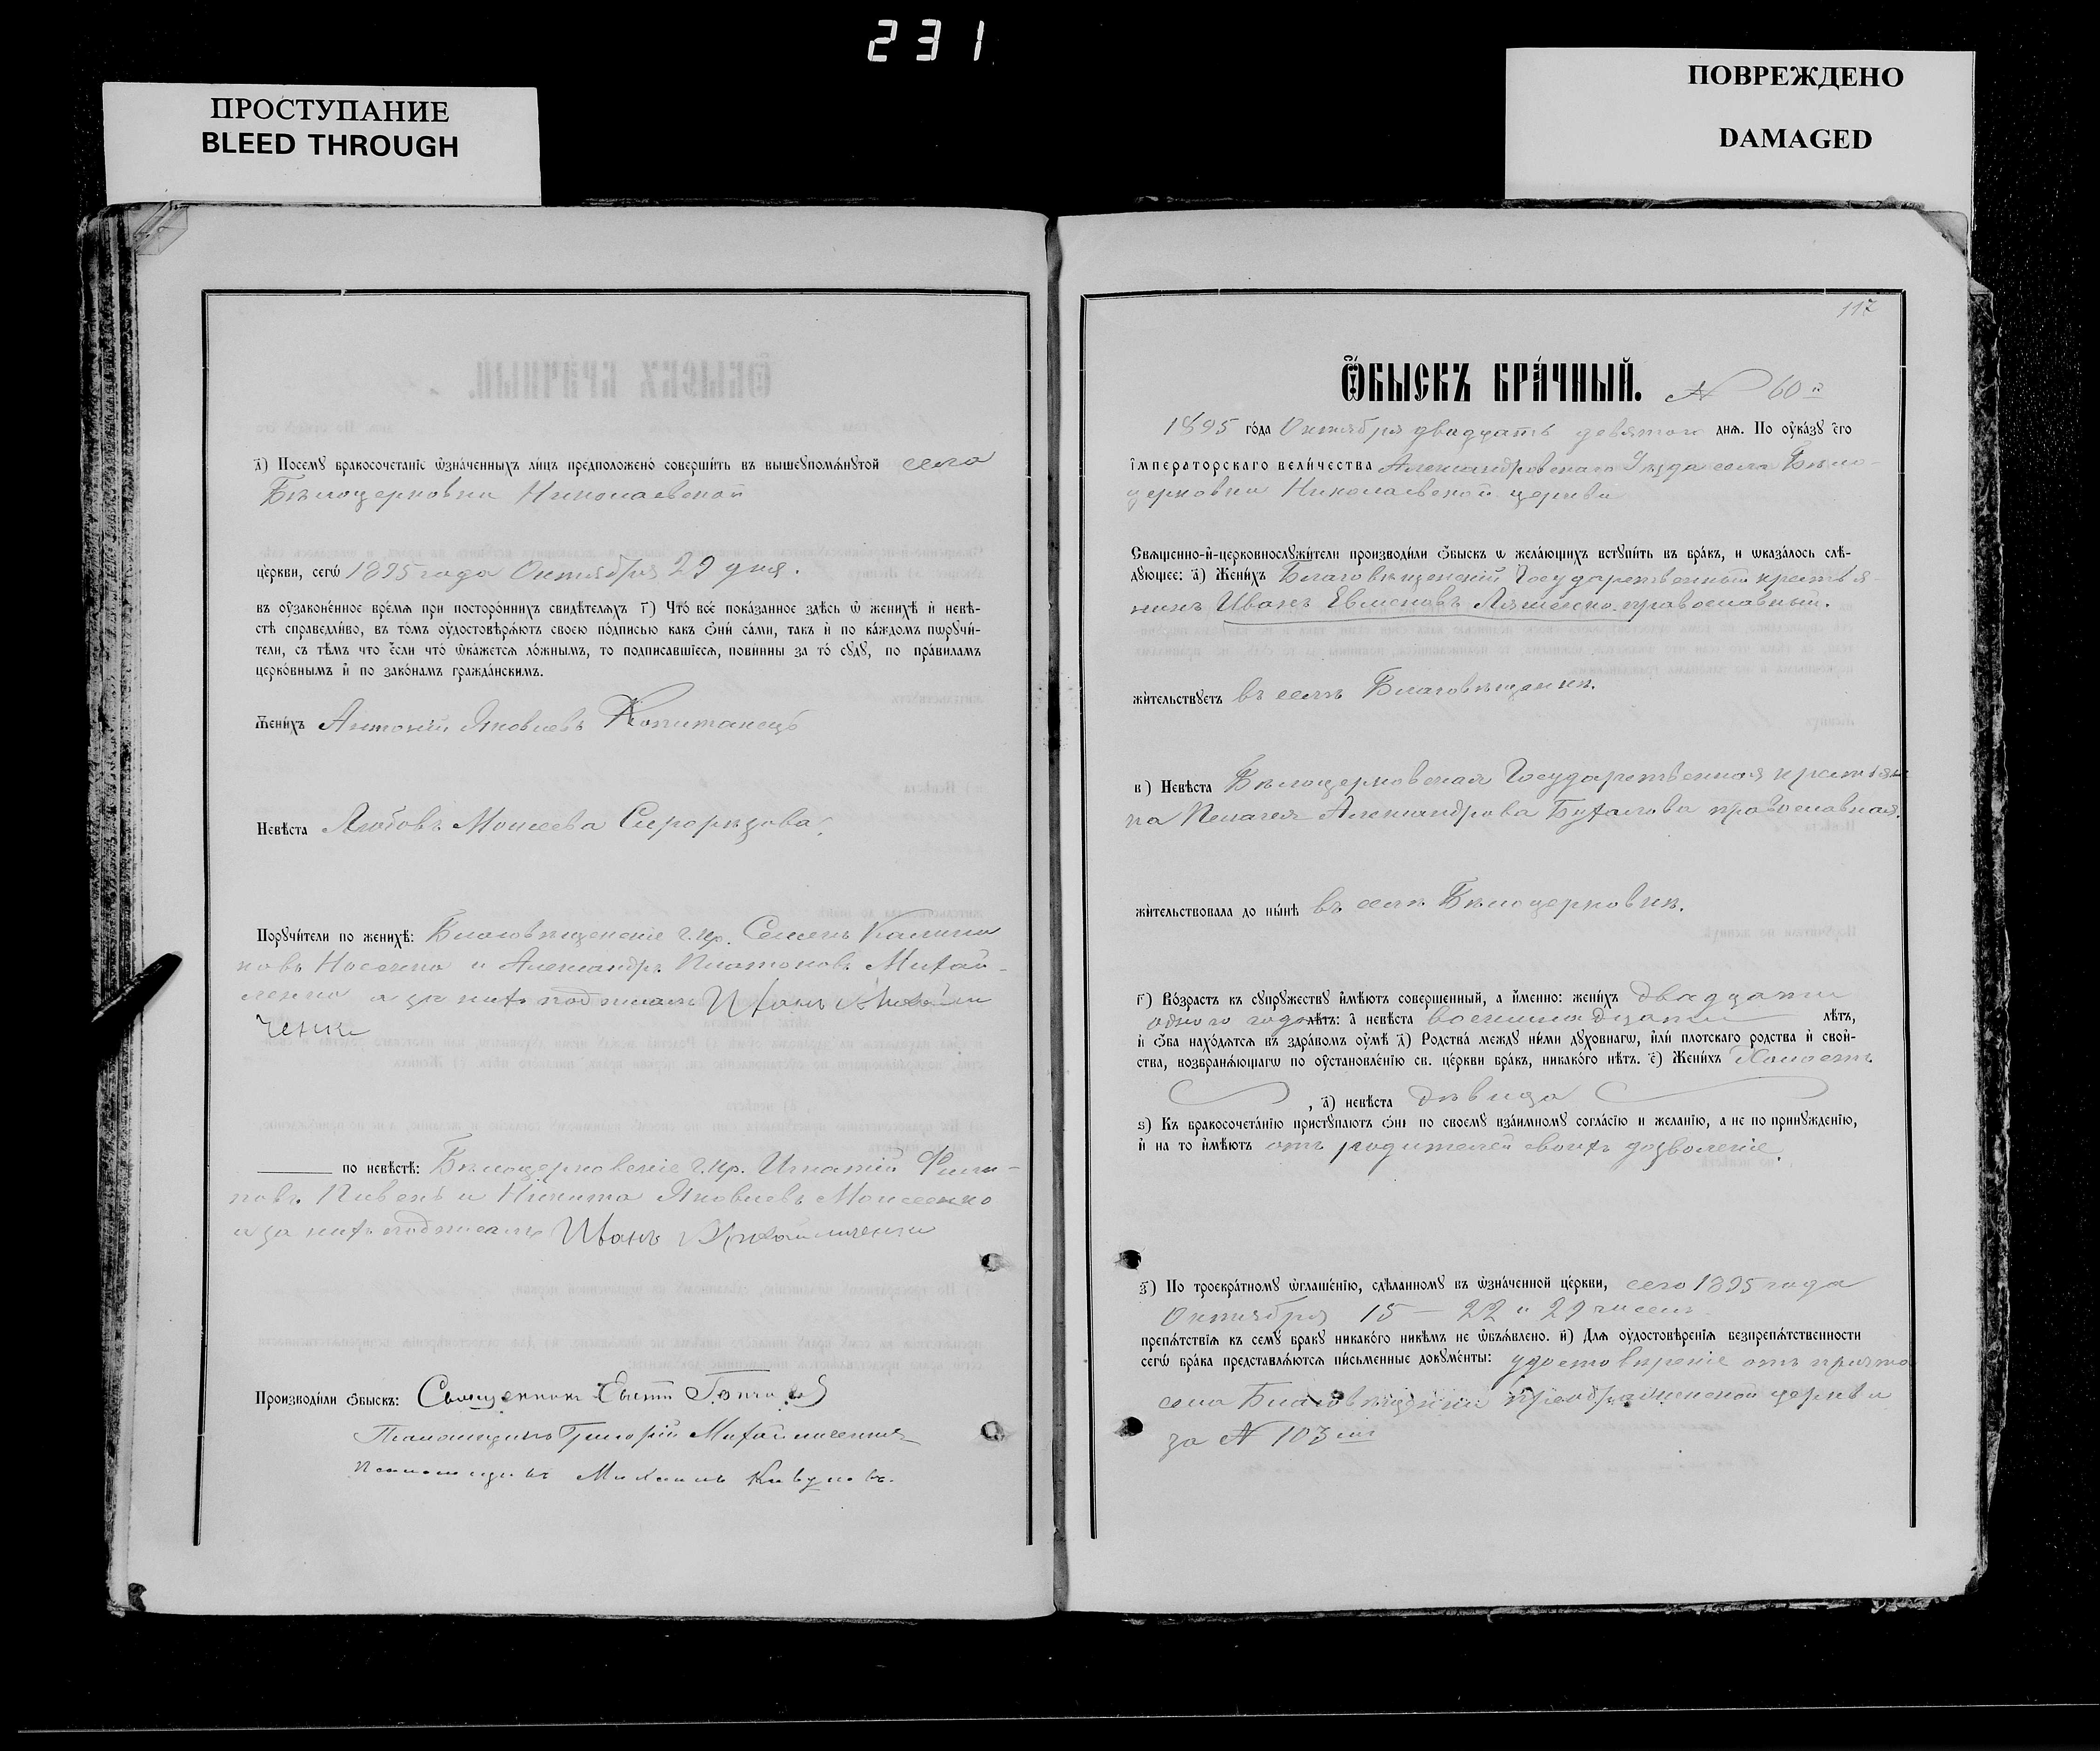 231
ПРОСТУПАНИЕ
BLEED THROUGH
ПОВРЕЖДЕНО
DAMAGED
д҃) Посемꙋ бракосочетанїе ѡзначенныхъ лицъ предположено совершить въ вышеꙋпомѧнꙋтой села
Бѣлоцерковки Николаевской
церкви, сегѡ 1895 года Октября 29 дня.
въ оузаконенное времѧ при постороннихъ свидѣтелѧхъ г҃) Что все показанное здѣсь ѡ женихѣ и невѣ-
стѣ справедливо, въ томъ оудостовѣрѧютъ своею подписью какъ ѻни сами, такъ и по каждомъ пѡрꙋчи-
тели, съ тѣмъ что если что ѡкажетсѧ ложнымъ, то подписавшїесѧ, повинны за то сꙋдꙋ, по правиламъ
церковнымъ и по законамъ гражданскимъ.
Женихъ Антоній Яковлевъ Копитанецъ
Невѣста Любовь Моисеева
Порꙋчители по женихѣ: Благовѣщенскіе г. кр. Семенъ Калини
новъ Носенко и Александръ Платоновъ Михай-
ленко а за нихъ подписалъ Иванъ
ченки
по невѣстѣ: Бѣлоцерковскіе г. кр. Игнатій Фили-
повъ Пивень и Никита Яковлевъ Моисеенко
а за нихъ подписалъ Иванъ
Производили ѻбыскъ: Священникъ
Псаломщикъ Григорій Михайличенко
Псаломщикъ Михаилъ
117
Ѻбыскъ брачный. № 60й
1895 года Октября двадцать девятого днѧ. По оуказꙋ его
императорскаго величества Александровскаго Уѣзда села Бѣло-
церковки Николаевской церкви
Свѧщенно-и-церковнослꙋжители производили ѻбыскъ ѡ желающихъ встꙋпить въ бракъ, и ѡказалось слѣ-
дꙋющее: а҃) Женихъ Благовѣщенскій Государственный крестья-
нинъ Иванъ Евменовъ Ляшенко православный.
жительствꙋетъ въ селѣ Благовѣщенкѣ.
в҃) Невѣста Бѣлоцерковская Государственная крестьян
ка Пелагея Александрова православная.
жительствовала до нынѣ въ селѣ Бѣлоцерковкѣ.
г҃) Возрастъ къ сꙋпрꙋжествꙋ имѣютъ совершенный, а именно: женихъ двадцати
одного года лѣтъ: а невѣста восемнадцати лѣтъ,
и ѻба находѧтсѧ въ здравомъ оумѣ д҃) Родства междꙋ ними дꙋховнагѡ, или плотскаго родства и свой-
ства, возбранѧющагѡ по оустановленїю св. церкви бракъ, никакого нѣтъ. е҃) Женихъ Холостъ
, д҃) невѣста дѣвица
ѕ҃) Къ бракосочетанїю пристꙋпаютъ ѻни по своемꙋ взаимномꙋ согласїю и желанїю, а не по принꙋжденїю,
и на то имѣютъ отъ родителей своихъ дозволеніе.
з҃) По троекратномꙋ ѡглашенїю, сдѣланномꙋ въ ѡзначенной церкви, сего 1895 года
Октября 15 — 22 и 29 чиселъ
препѧтствїѧ къ семꙋ бракꙋ никакого никѣмъ не ѡбъѧвлено. и҃) Длѧ оудостовѣренїѧ безпрепѧтственности
сегѡ брака представлѧютсѧ письменные докꙋменты: удостовѣреніе отъ причта
села Благовѣщенки церкви
за № 103